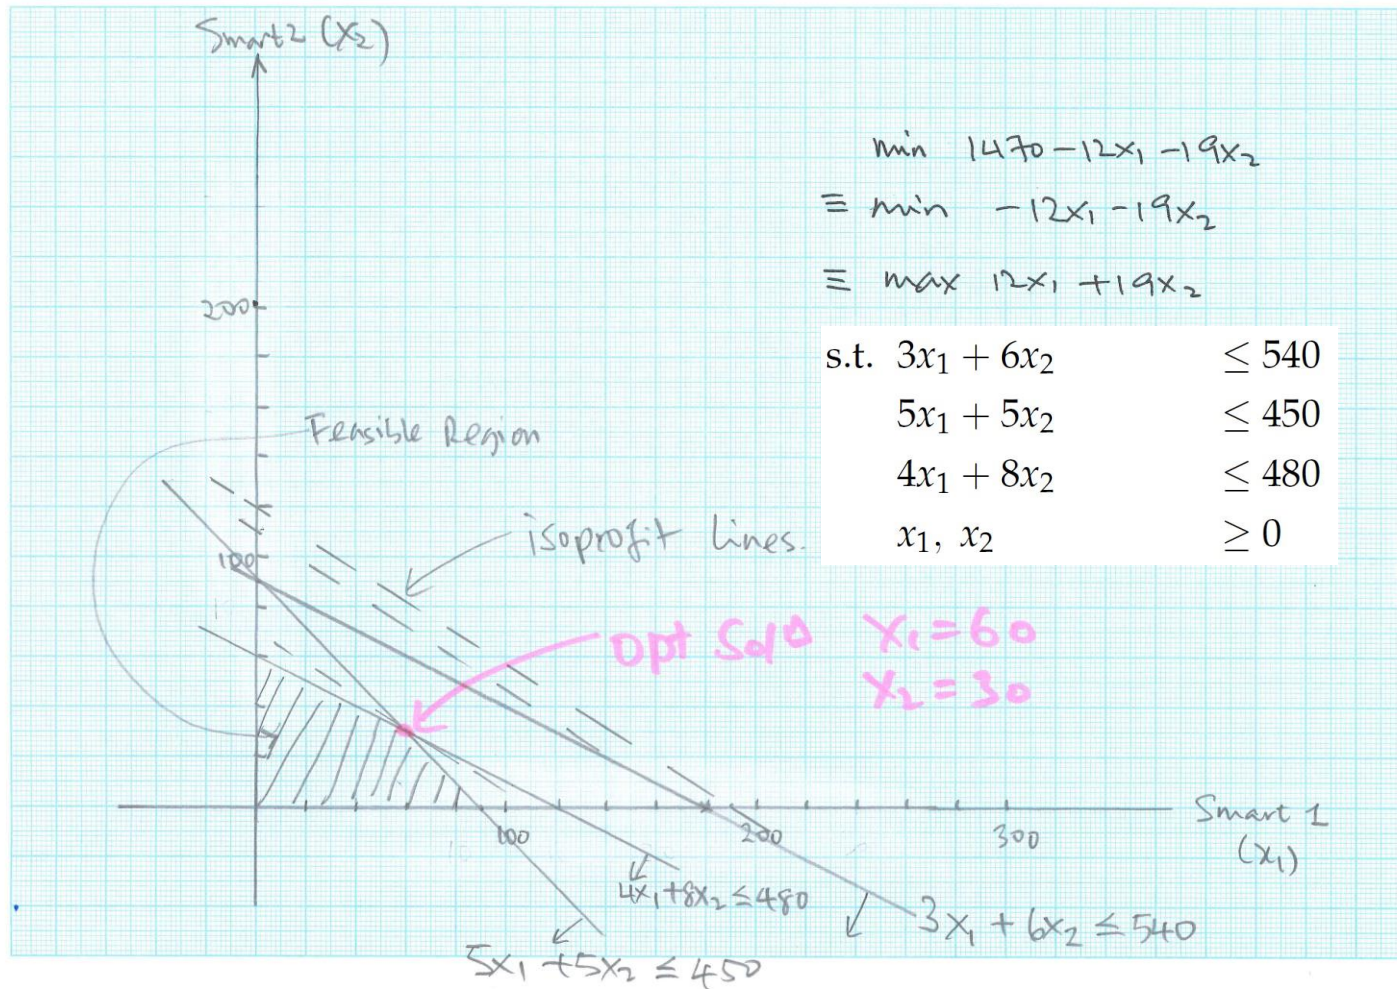 Smart2 (x₂)
min 1470-12x₁-19x₂
≡ min -12x₁-19x₂
≡ max 12x₁+19x₂
s.t. 3x₁ + 6x₂ ≤ 540
5x₁ + 5x₂ ≤ 450
4x₁ + 8x₂ ≤ 480
x₁, x₂ ≥ 0
200
Feasible Region
isoprofit lines.
100
opt Sol
x₁=60
x₂=30
100
200
300
Smart 1
(x₁)
4x₁+8x₂ ≤480
3x₁ + 6x₂ ≤ 540
5x₁ +5x₂ ≤ 450